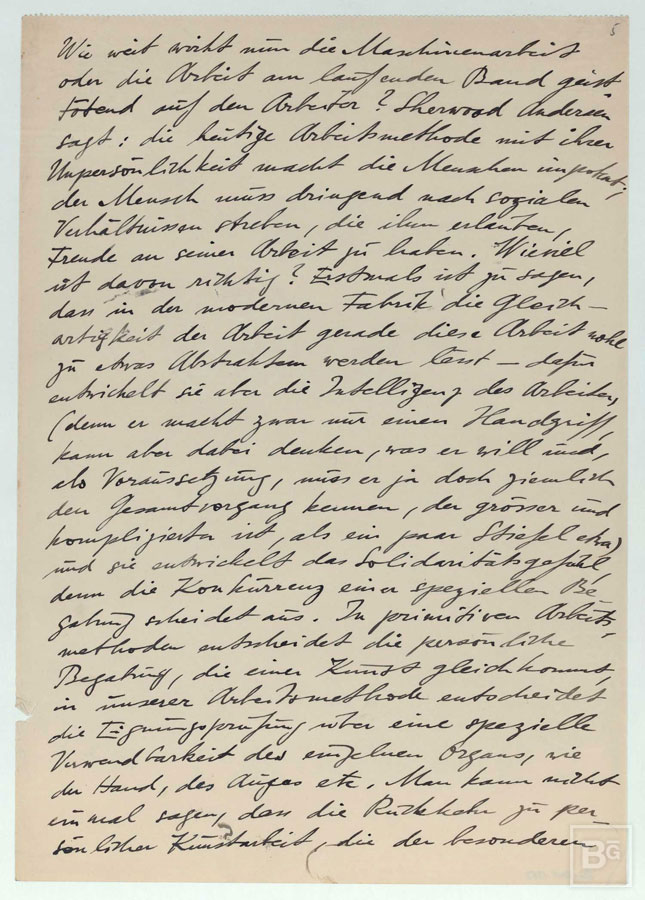 5
Wie weit wirkt nun die Maschinenarbeit
oder die Arbeit am laufenden Band geist
tötend auf den Arbeiter? Sherwood Anderson
sagt: die heutige Arbeitsmethode mit ihrer
Unpersönlichkeit macht die Menschen impotent,
der Mensch muss dringend nach sozialen
Verhältnissen streben, die ihm erlauben,
Freude an seiner Arbeit zu haben. Wieviel
ist davon richtig? Erstmals ist zu sagen,
dass in der modernen Fabrik die Gleich-
artigkeit der Arbeit gerade diese Arbeit wohl
zu etwas Abstraktem werden lesst – dafür
entwickelt sie aber die Intelligenz des Arbeiters,
(denn er macht zwar nur einen Handgriff,
kann aber dabei denken, was er will und,
als Voraussetzung, muss er ja doch ziemlich
den Gesamtvorgang kennen, der grösser und
komplizierter ist, als ein paar Stiefel etwa)
und sie entwickelt das Solidaritätsgefühl,
denn die Konkurrenz einer speziellen Be
gabung scheidet aus. In primitiven Arbeits-
methoden entscheidet die persönliche
Begabung, die einer Kunst gleichkommt,
in unserer Arbeitsmethode entscheidet
die Eignungsprüfung über eine spezielle
Verwendbarkeit des einzelnen Organs, wie
der Hand, des Auges etc. Man kann nicht
einmal sagen, dass die Rückkehr zu per-
sönlicher Kunstarbeit, die der besonderen
BG